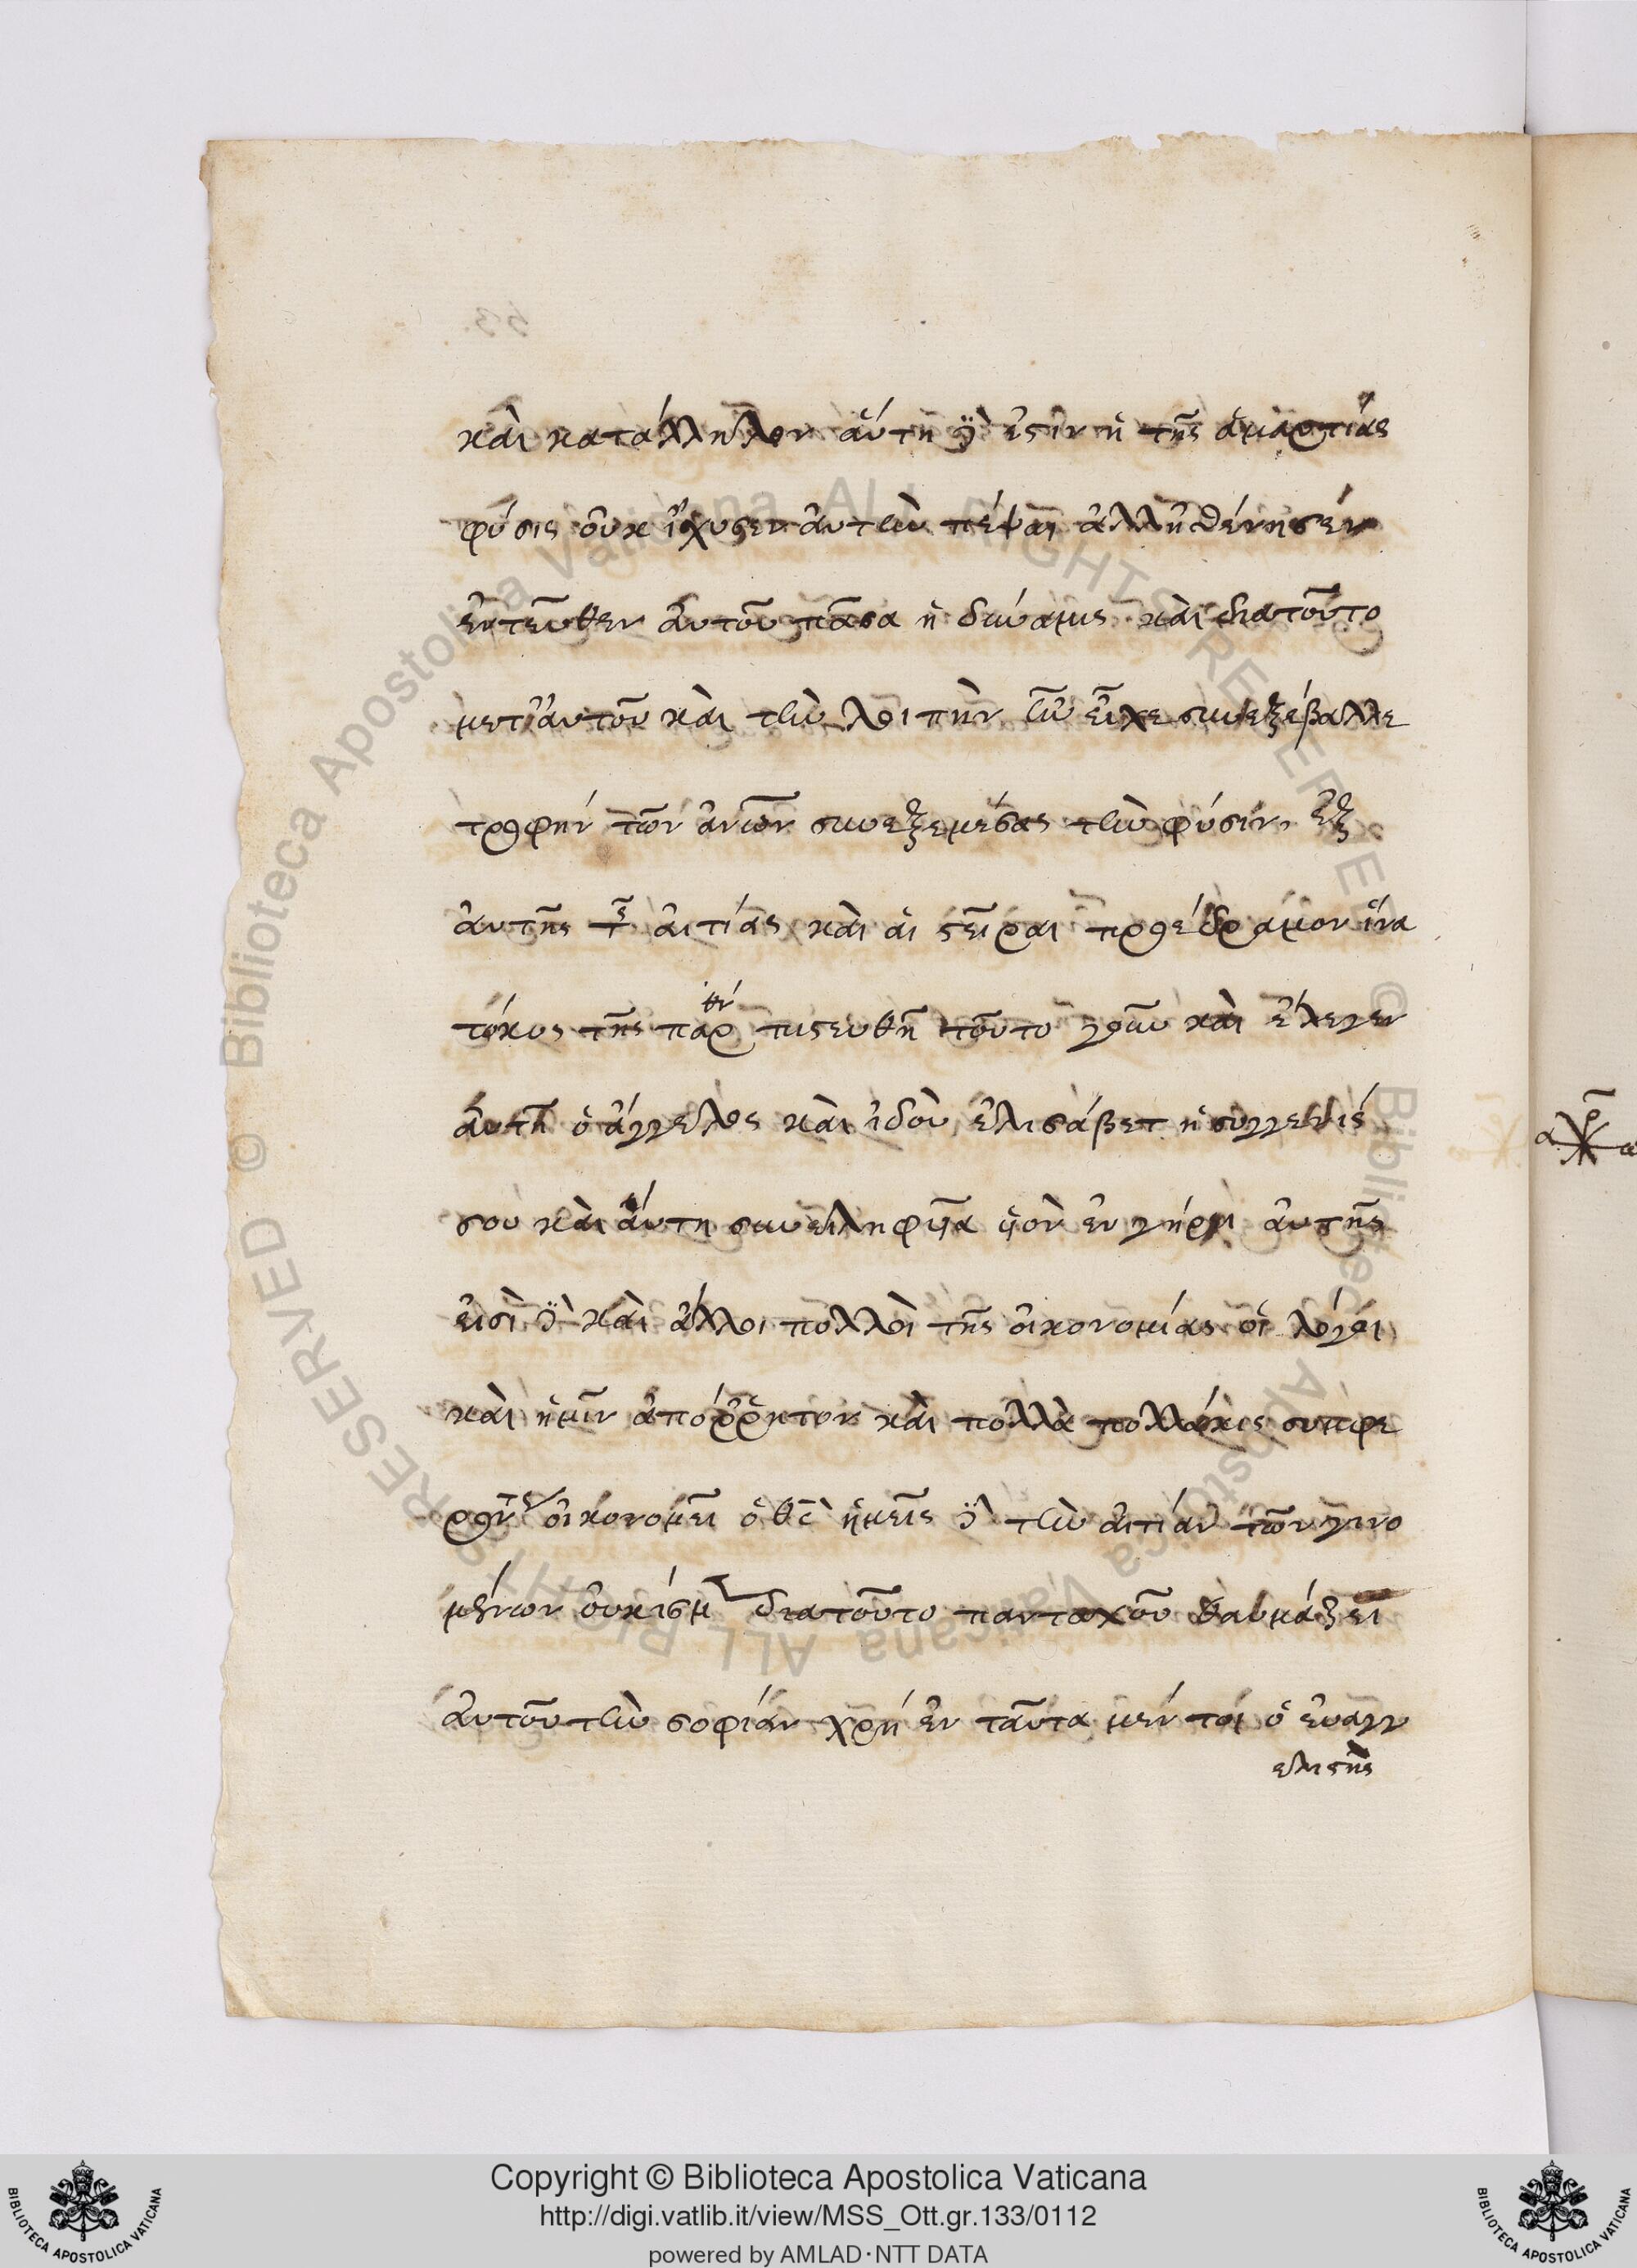 καὶ κατάλληλον αὕτη δὲ ἐστιν ἡ τῆς ἁμαρτίας
φύσις οὐκ ἴχυσεν αὐτὴν πέψαι ἀλλ' ἠσθένησεν
ἐντεῦθεν αὐτοῦ πᾶσα ἡ δύναμις καὶ διατοῦτο
μετ' αὐτοῦ καὶ τὴν λοιπὴν ἣν εἶχε συνεξέβαλλε
τροφὴν τῶν ἀνων συνεξεμέσας τὴν φύσιν, ἐξ
αὐτῆς τῆς αἰτίας καὶ αἱ στεῖραι προέδραμον ἵνα
τόκος τῆς παρθν πιστευθῆ τοῦτο γοῦν καὶ ἔλεγεν
αὐτῆ ὁ ἄγγελος καὶ ἰδοὺ ἐλισάβετ ἡ συγγενίς
σου καὶ αὕτη συνειληφυῖα υἱὸν ἐν γήρει αὐτῆς
εἰσὶ δὲ καὶ ἄλλοι πολλοὶ τῆς οἰκονομίας οἱ λόγοι
καὶ ἡμῖν ἀπόρρητον καὶ πολλὰ πολλάκις συμφε
ρόντως οἰκονομεῖ ὁ θς ἡμεῖς δὲ τὴν αἰτίαν τῶν γινο
μένων οὐκ ἴσμ διατοῦτο πανταχοῦ θαυμάζει
αὐτοῦ τὴν σοφίαν χρή ἐν ταῦτα μέν τοι ὁ εὐαγγ
ελιστὴς
Copyright © Biblioteca Apostolica Vaticana
http://digi.vatlib.it/view/MSS_Ott.gr.133/0112
powered by AMLAD·NTT DATA
BIBLIOTECA APOSTOLICA VATICANA
BIBLIOTECA APOSTOLICA VATICANA